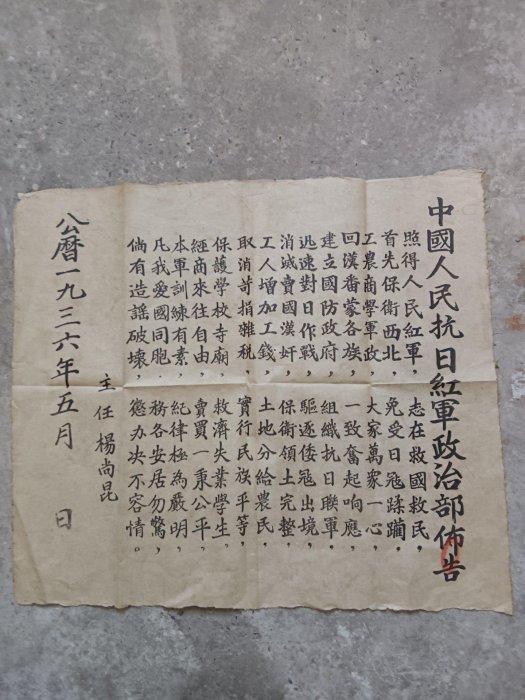 中國人民抗日紅軍政治部佈告
照得人民紅軍，志在救國救民，
首先保衛西北，免受日寇蹂躪。
工農商學軍政，大家萬衆一心，
回漢番蒙各族，一致奮起响應，
建立國防政府，組織抗日聯軍，
迅速對日作戰，驅逐倭寇出境，
消滅賣國漢奸，保衛領土完整，
工人增加工錢，土地分給農民，
取消苛捐雜税，實行民族平等，
保護學校寺廟，救濟失業學生，
經商來往自由，賣買一秉公平，
本軍訓練有素，紀律極為嚴明，
凡我愛國同胞，務各安居勿驚，
倘有造謡破壞，懲办决不容情。
主任 楊尚昆
公曆一九三六年五月 日